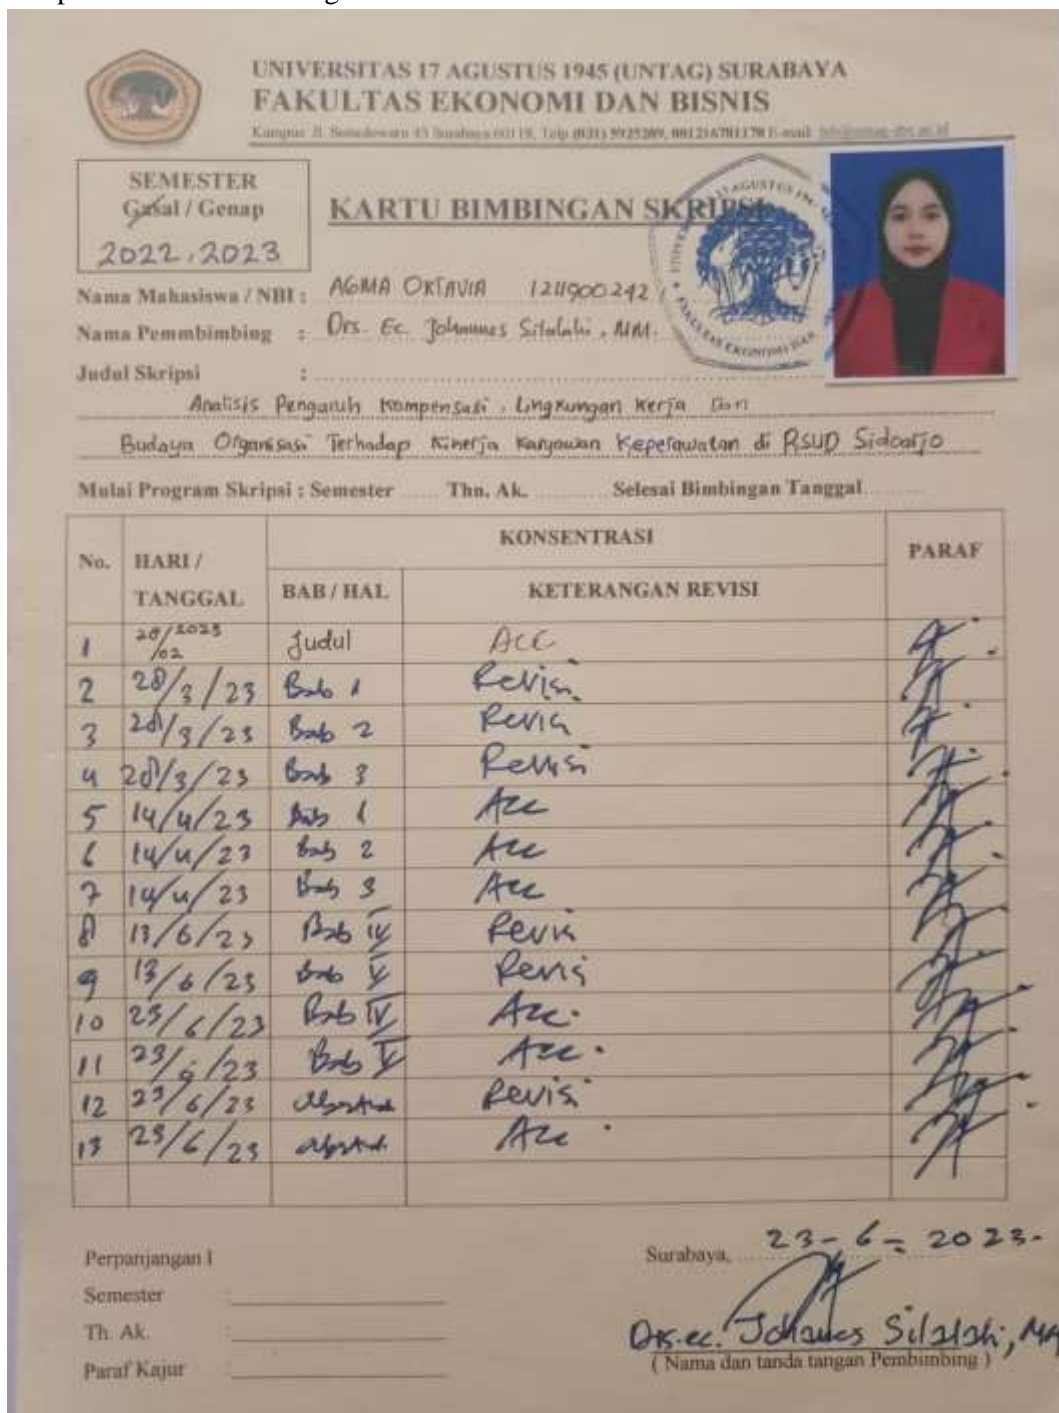 UNIVERSITAS 17 AGUSTUS 1945 (UNTAG) SURABAYA
FAKULTAS EKONOMI DAN BISNIS
Kampus: Jl. Semolowaru 45 Surabaya 60118, Telp (031) 5925289, 081216781178 E-mail:
SEMESTER
Gasal / Genap
2022, 2023
KARTU BIMBINGAN SKRIPSI
Nama Mahasiswa / NBI : AGMA OKTAVIA 1211900242
Nama Pemmbimbing : Drs. Ec. Johannes Silalahi, MM.
Judul Skripsi :
Analisis Pengaruh Kompensasi, Lingkungan Kerja Dan
Budaya Organisasi Terhadap Kinerja Karyawan Keperawatan di RSUD Sidoarjo
Mulai Program Skripsi : Semester Thn. Ak. Selesai Bimbingan Tanggal
No. HARI / TANGGAL KONSENTRASI PARAF
BAB / HAL KETERANGAN REVISI
1 28/02 2023 Judul ACC
2 28/3/23 Bab 1 Revisi
3 28/3/23 Bab 2 Revisi
4 28/3/23 Bab 3 Revisi
5 14/4/23 Bab 1 Acc
6 14/4/23 Bab 2 Acc
7 14/4/23 Bab 3 Acc
8 13/6/23 Bab IV Revisi
9 13/6/23 Bab V Revisi
10 23/6/23 Bab IV Acc.
11 23/6/23 Bab V Acc.
12 23/6/23 Abstrak Revisi
13 23/6/23 Abstrak Acc.
Perpanjangan I
Semester :
Th. Ak. :
Paraf Kajur :
Surabaya, 23-6-2023.
Drs. ec. Johanes Silalahi, MM
( Nama dan tanda tangan Pembimbing )